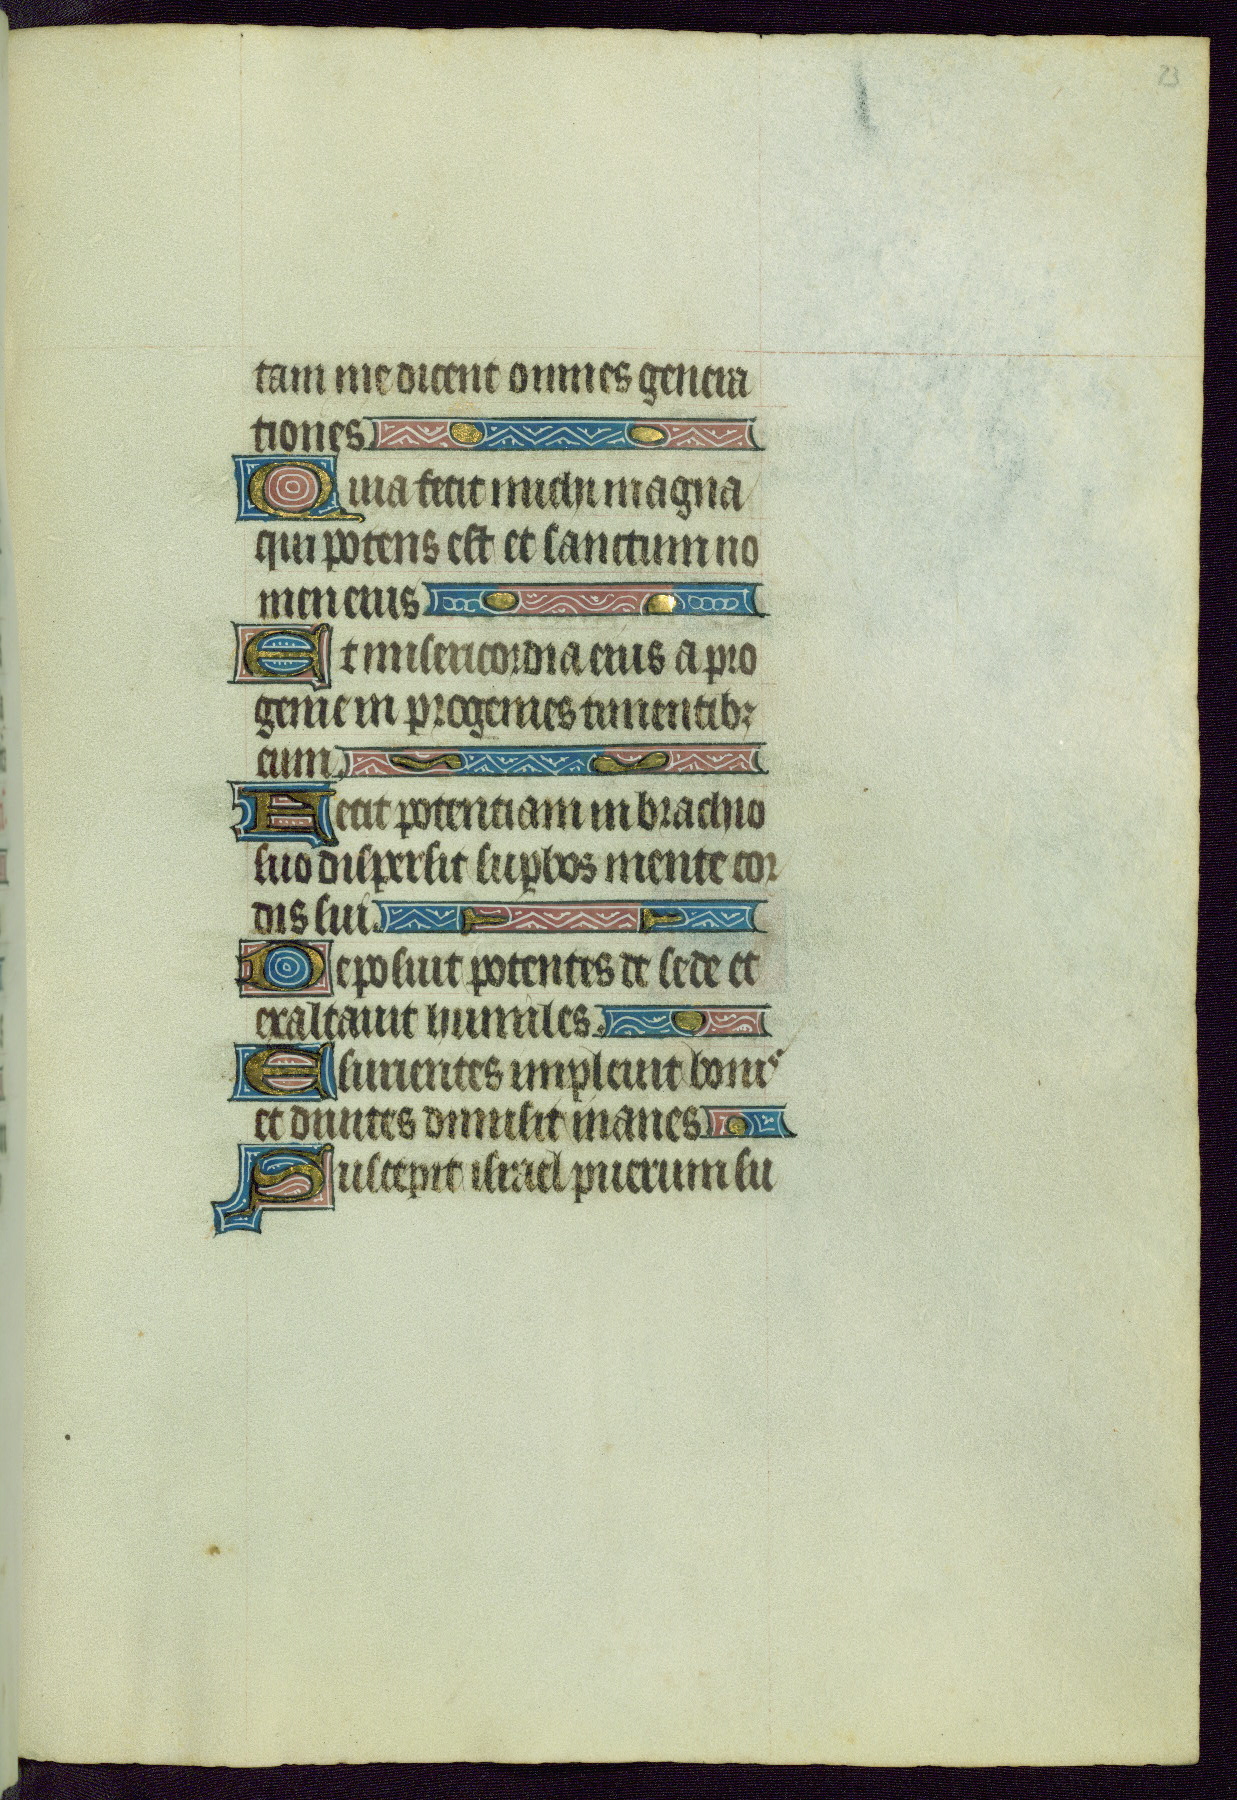 23
tam me dicent omnes genera
tiones
Quia fecit michi magna
qui potens est et sanctum no
men eius
Et misericordia eius a pro
genie in progenies timentibꝫ
eum.
Fecit potentiam in brachio
suo dispersit supbos mente cor
dis sui.
Deposuit potentes de sede et
exaltauit humiles.
Esurientes impleuit bonis
et diuites dimisit inanes
Suscepit israel puerum su